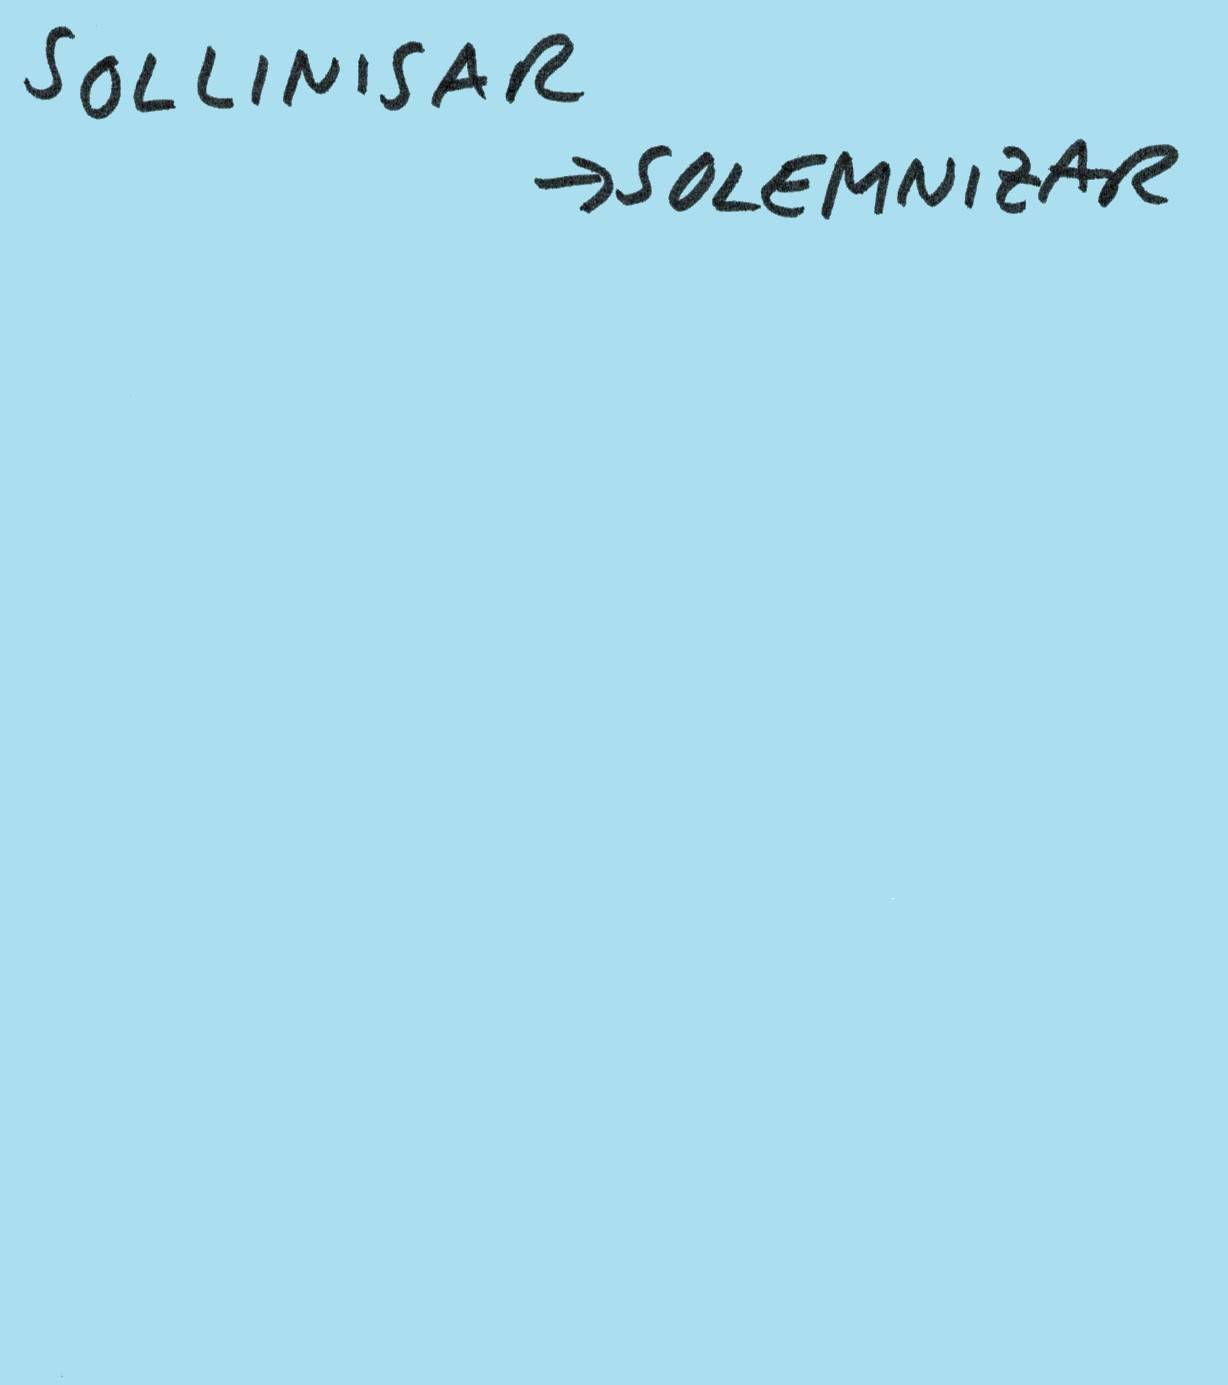 SOLLINISAR
→SOLEMNIZAR